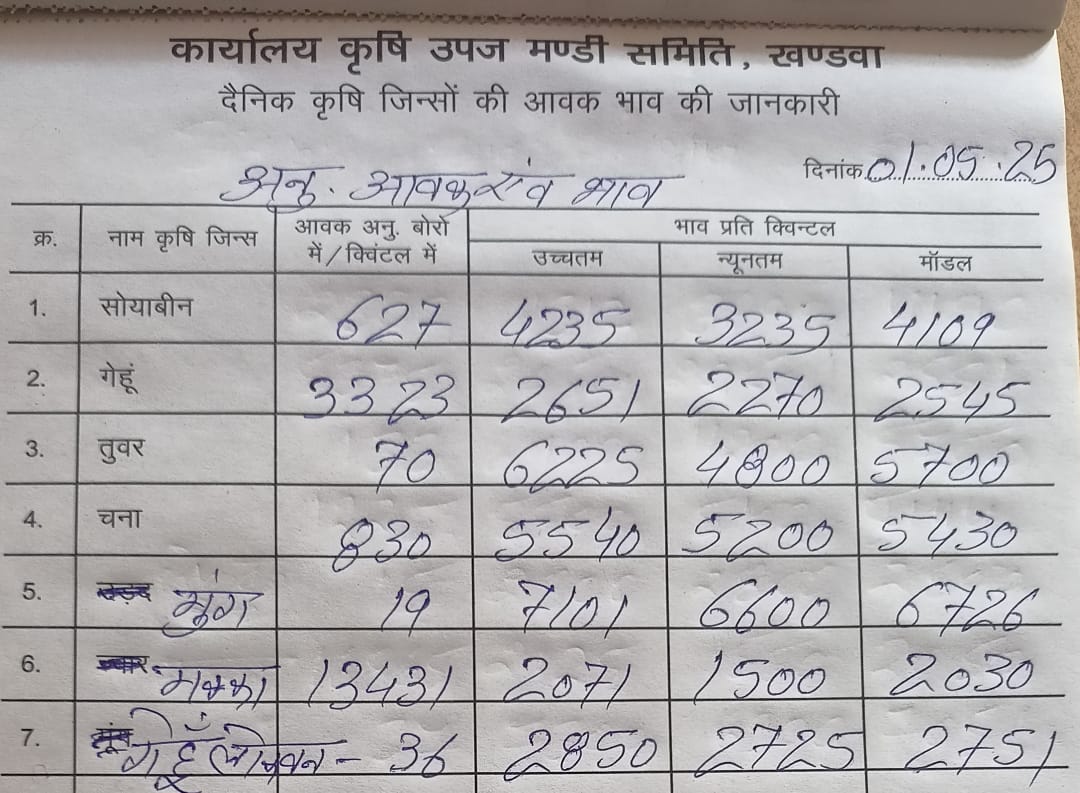 कार्यालय कृषि उपज मण्डी समिति, खण्डवा
दैनिक कृषि जिन्सों की आवक भाव की जानकारी
दिनांक 01.05.25
अनु. आवक एंव भाव
क्र. नाम कृषि जिन्स आवक अनु. बोरो में/क्विंटल में भाव प्रति क्विन्टल
उच्चतम न्यूनतम मॉडल
1. सोयाबीन 627 4235 3235 4109
2. गेहूं 3323 2651 2270 2545
3. तुवर 70 6225 4800 5700
4. चना 830 5540 5200 5430
5. मुंग 19 7101 6600 6726
6. मक्का 13431 2071 1500 2030
7. गेहूँ लोकवन - 36 2850 2725 2751